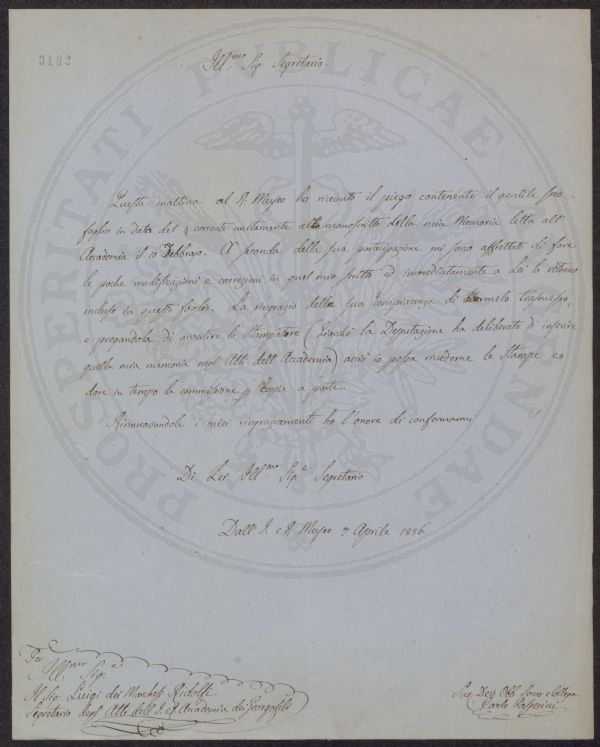 3182
Ill.mo Sig. Segretario
Questa mattina al R. Museo ho ricevuto il piego contenente il gentile suo
foglio in data del 4 corrente unitamente al manoscritto della mia Memoria letta all'
Accademia il 10 Febbrajo. A seconda della sua partecipazione mi sono affrettato di fare
le poche modificazioni e correzioni in quel mio scritto ed immediatamente a Lei lo ritorno
incluso in questo foglio. La ringrazio della sua compiacenza di avermelo trasmesso,
e pregandola di avvertire lo Stampatore (Giacchè la Deputazione ha deliberato di inserire
questa mia memoria negli Atti dell'Accademia) acciò io possa rivederne le Stampe, e
dare in tempo la commissione copie a parte.
Rinnuovandole i miei ringraziamenti ho l'onore di confermarmi
Di Lei Ill.mo Sig.e Segretario
Dall' I. e R. Museo 7. Aprile 1856
Ill.mo Sig.e
Il Sig. Luigi dei Marchesi Ridolfi
Segretario degli Atti dell'I. e R. Accademia dei Georgofili
Suo Dev. Obb. Servo e Collega
Carlo Passerini
PROSPERITATI PUBLICAE AUGENDAE